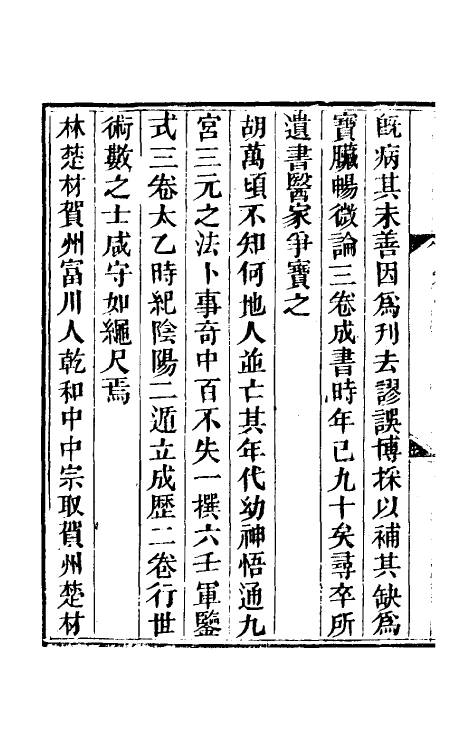 旣病其未善因爲刋去謬誤博採以補其缺爲
寶臟暢微論三卷成書時年已九十矣尋卒所
遺書醫家爭寶之
胡萬頃不知何地人並亡其年代幼神悟通九
宮三元之法卜事奇中百不失一撰六壬軍鑒
式三卷太乙時紀陰陽二遁立成歷二卷行世
術數之士咸守如繩尺焉
林楚材賀州富川人乾和中中宗取賀州楚材